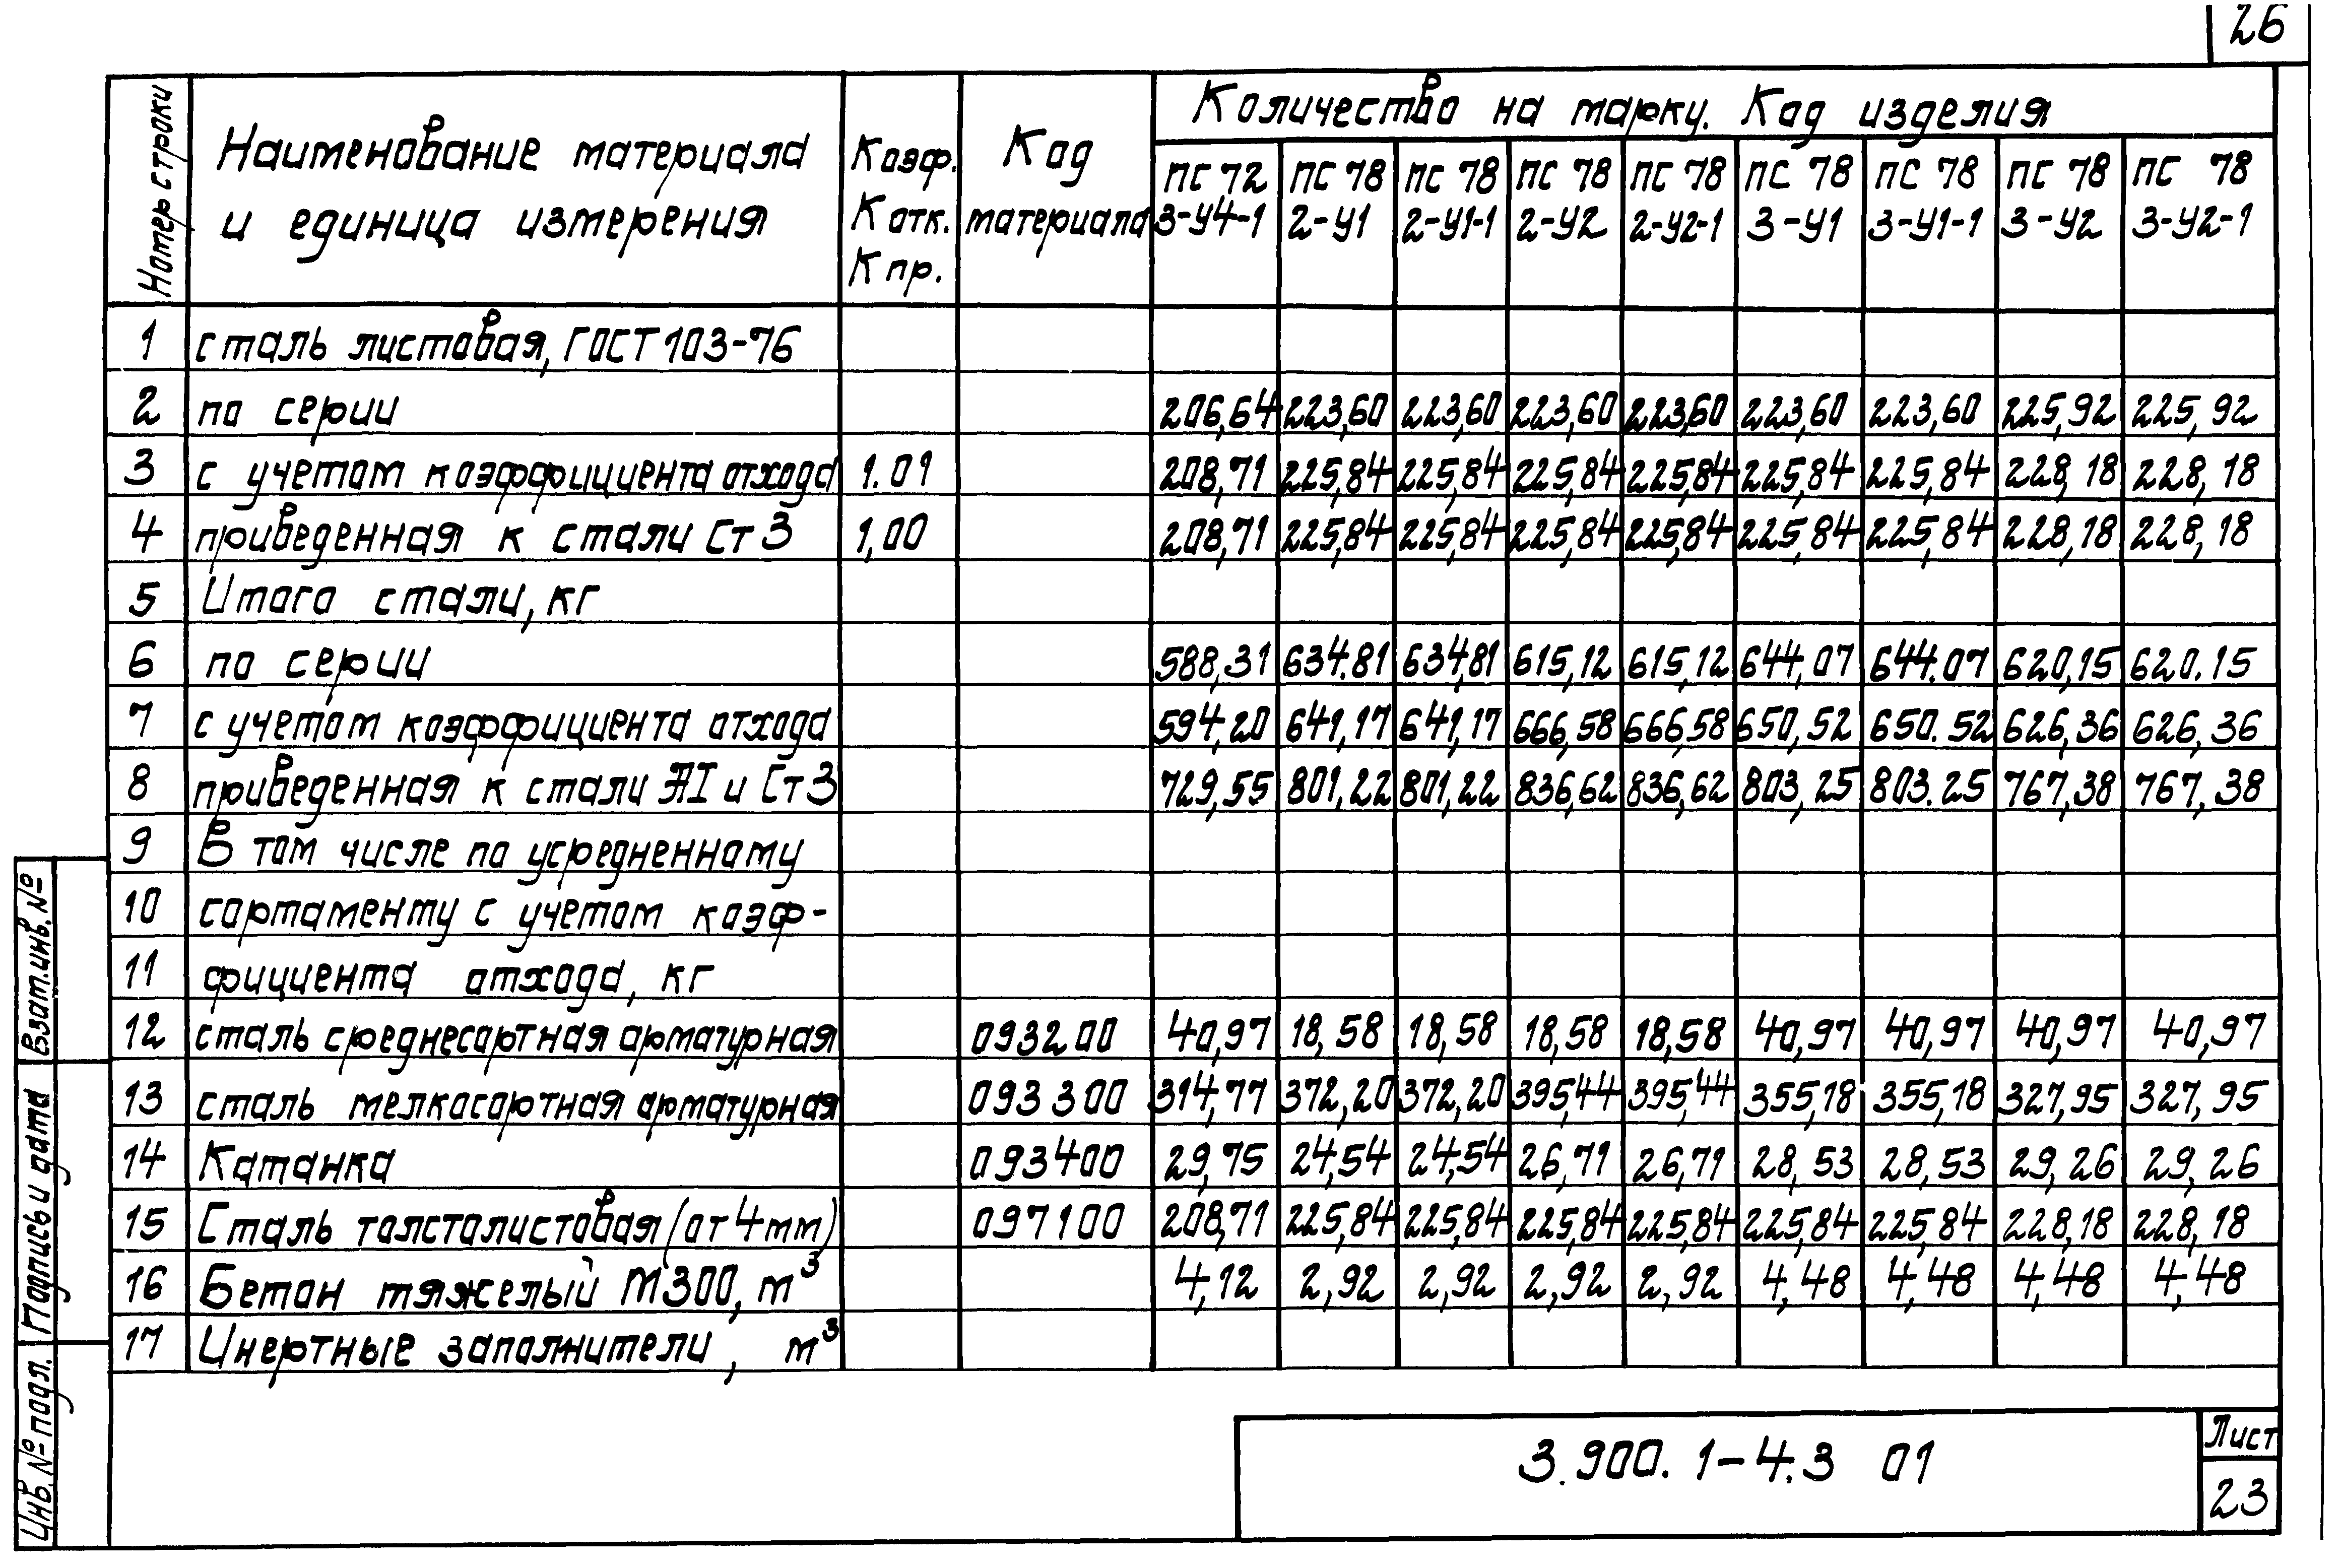 26
Номер строки
Наименование материала
и единица измерения
Коэф.
К отк.
К пр.
Код
материала
Количество на марку. Код изделия
ПС 72 ПС 78 ПС 78 ПС 78 ПС 78 ПС 78 ПС 78 ПС 78 ПС 78
3-У4-1 2-У1 2-У1-1 2-У2 2-У2-1 3-У1 3-У1-1 3-У2 3-У2-1
1 сталь листовая, ГОСТ 103-76
2 по серии 206,64 223,60 223,60 223,60 223,60 223,60 223,60 225,92 225,92
3 с учетом коэффициента отхода 1.01 208,71 225,84 225,84 225,84 225,84 225,84 225,84 228,18 228,18
4 приведенная к стали Ст 3 1,00 208,71 225,84 225,84 225,84 225,84 225,84 225,84 228,18 228,18
5 Итого стали, кг
6 по серии 588,31 634.81 634,81 615,12 615,12 644,07 644.07 620,15 620.15
7 с учетом коэффициента отхода 594,20 641,17 641,17 666,58 666,58 650,52 650.52 626,36 626,36
8 приведенная к стали АI и Ст 3 729,55 801,22 801,22 836,62 836,62 803,25 803.25 767,38 767,38
9 В том числе по усредненному
10 сортаменту с учетом коэф-
11 фициента отхода, кг
12 сталь среднесортная арматурная 093200 40,97 18,58 18,58 18,58 18,58 40,97 40,97 40,97 40,97
13 сталь мелкосортная арматурная 093300 314,77 372,20 372,20 395,44 395,44 355,18 355,18 327,95 327,95
14 Катанка 093400 29,75 24,54 24,54 26,71 26,71 28,53 28,53 29,26 29,26
15 Сталь толстолистовая (от 4 мм) 097100 208,71 225,84 225,84 225,84 225,84 225,84 225,84 228,18 228,18
16 Бетон тяжелый М300, м³ 4,12 2,92 2,92 2,92 2,92 4,48 4,48 4,48 4,48
17 Инертные заполнители, м³
Взам.инв.№
Подпись и дата
Инв.№ подл.
3.900.1-4.3 01
Лист
23